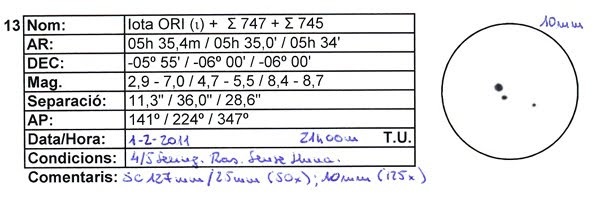 10mm
13 Nom: Iota ORI (ι) + Σ 747 + Σ 745
AR: 05h 35,4m / 05h 35,0' / 05h 34'
DEC: -05º 55' / -06º 00' / -06º 00'
Mag. 2,9 - 7,0 / 4,7 - 5,5 / 8,4 - 8,7
Separació: 11,3" / 36,0" / 28,6"
AP: 141º / 224º / 347º
Data/Hora: 1-2-2011 21h00m T.U.
Condicions: 4/5 Ras. Sense lluna.
Comentaris: SC 127mm/25mm (50x); 10mm (125x)